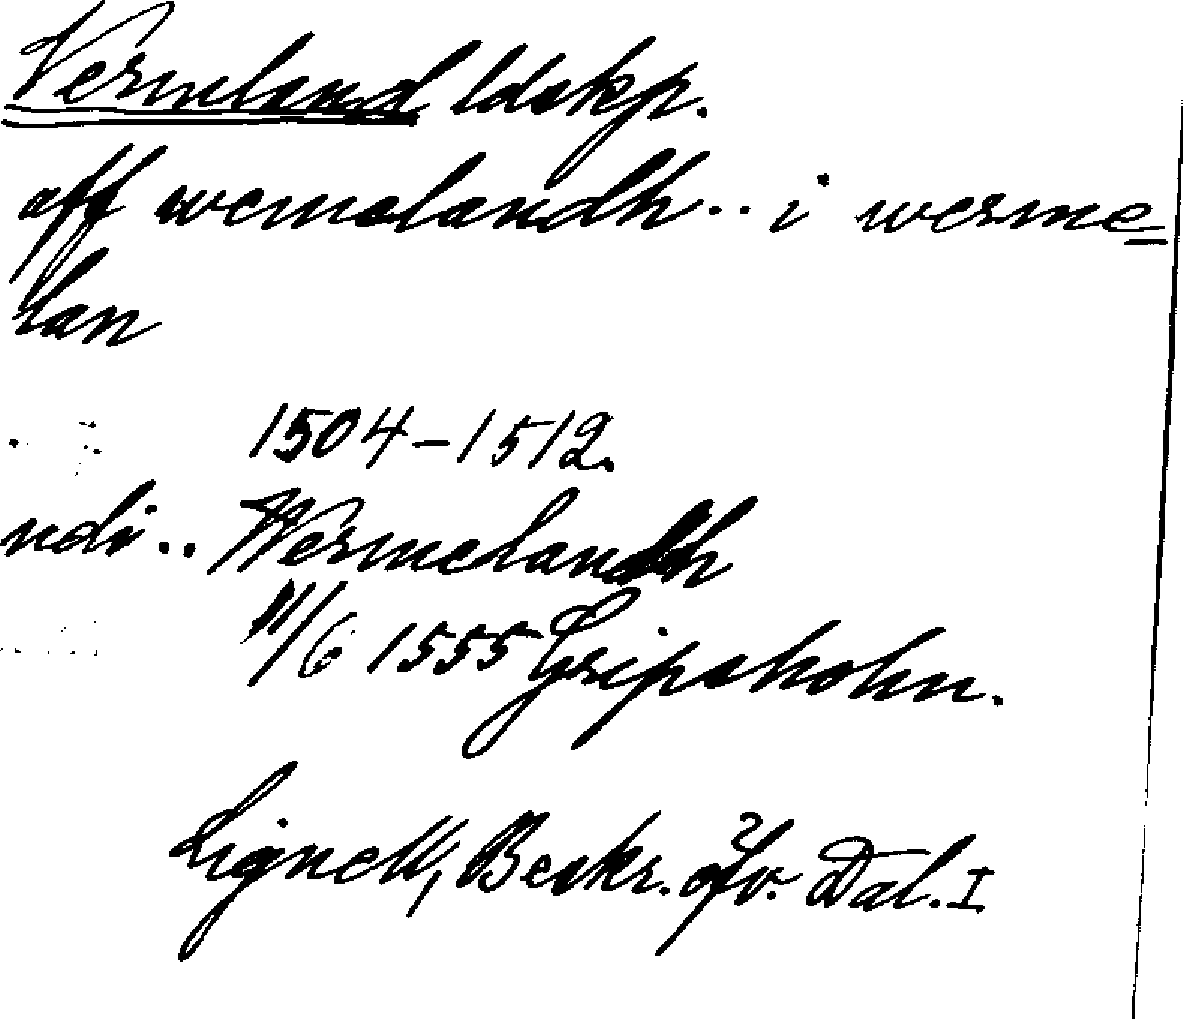 Vermland ldskp.
aff wemalandh.. i werme-
lan
1504-1512.
udi.. Wermelandh
11/6 1555 Gripsholm.
Lignell, Beskr. öfv. Dal. I